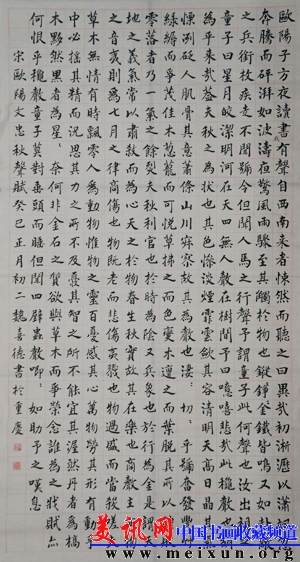 歐陽子方夜讀書聞有聲自西南來者悚然而聽之曰異哉初淅瀝以瀟颯忽
奔騰而砰湃如波濤夜驚風雨驟至其觸於物也鏦鏦錚錚金鐵皆鳴又如赴敵
之兵銜枚疾走不聞號令但聞人馬之行聲予謂童子此何聲也汝出視之
童子曰星月皎潔明河在天四無人聲聲在樹間予曰噫嘻悲哉此秋聲也胡
為乎來哉蓋夫秋之為狀也其色慘淡煙霏雲斂其容清明天高日晶其氣
慄冽砭人肌骨其意蕭條山川寂寥故其為聲也淒淒切切呼號奮發豐草
綠縟而爭茂佳木蔥蘢而可悅草拂之而色變木遭之而葉脫其所以摧敗
零落者乃一氣之餘烈夫秋刑官也於時為陰又兵象也於行為金是謂天
地之義氣常以肅殺而為心天之於物春生秋實故其在樂也商聲主西方
之音夷則為七月之律商傷也物既老而悲傷夷戮也物過盛而當殺嗟夫
草木無情有時飄零人為動物惟物之靈百憂感其心萬物勞其形有動於
中必搖其精而況思其力之所不及憂其智之所不能宜其渥然丹者為槁
木黟然黑者為星星奈何非金石之質欲與草木而爭榮念誰為之戕賊亦
何恨乎秋聲童子莫對垂頭而睡但聞四壁蟲聲唧唧如助予之嘆息
宋歐陽文忠秋聲賦癸巳正月初二魏喜德書於重慶
美讯网 中国书画收藏频道
www.meixun.org